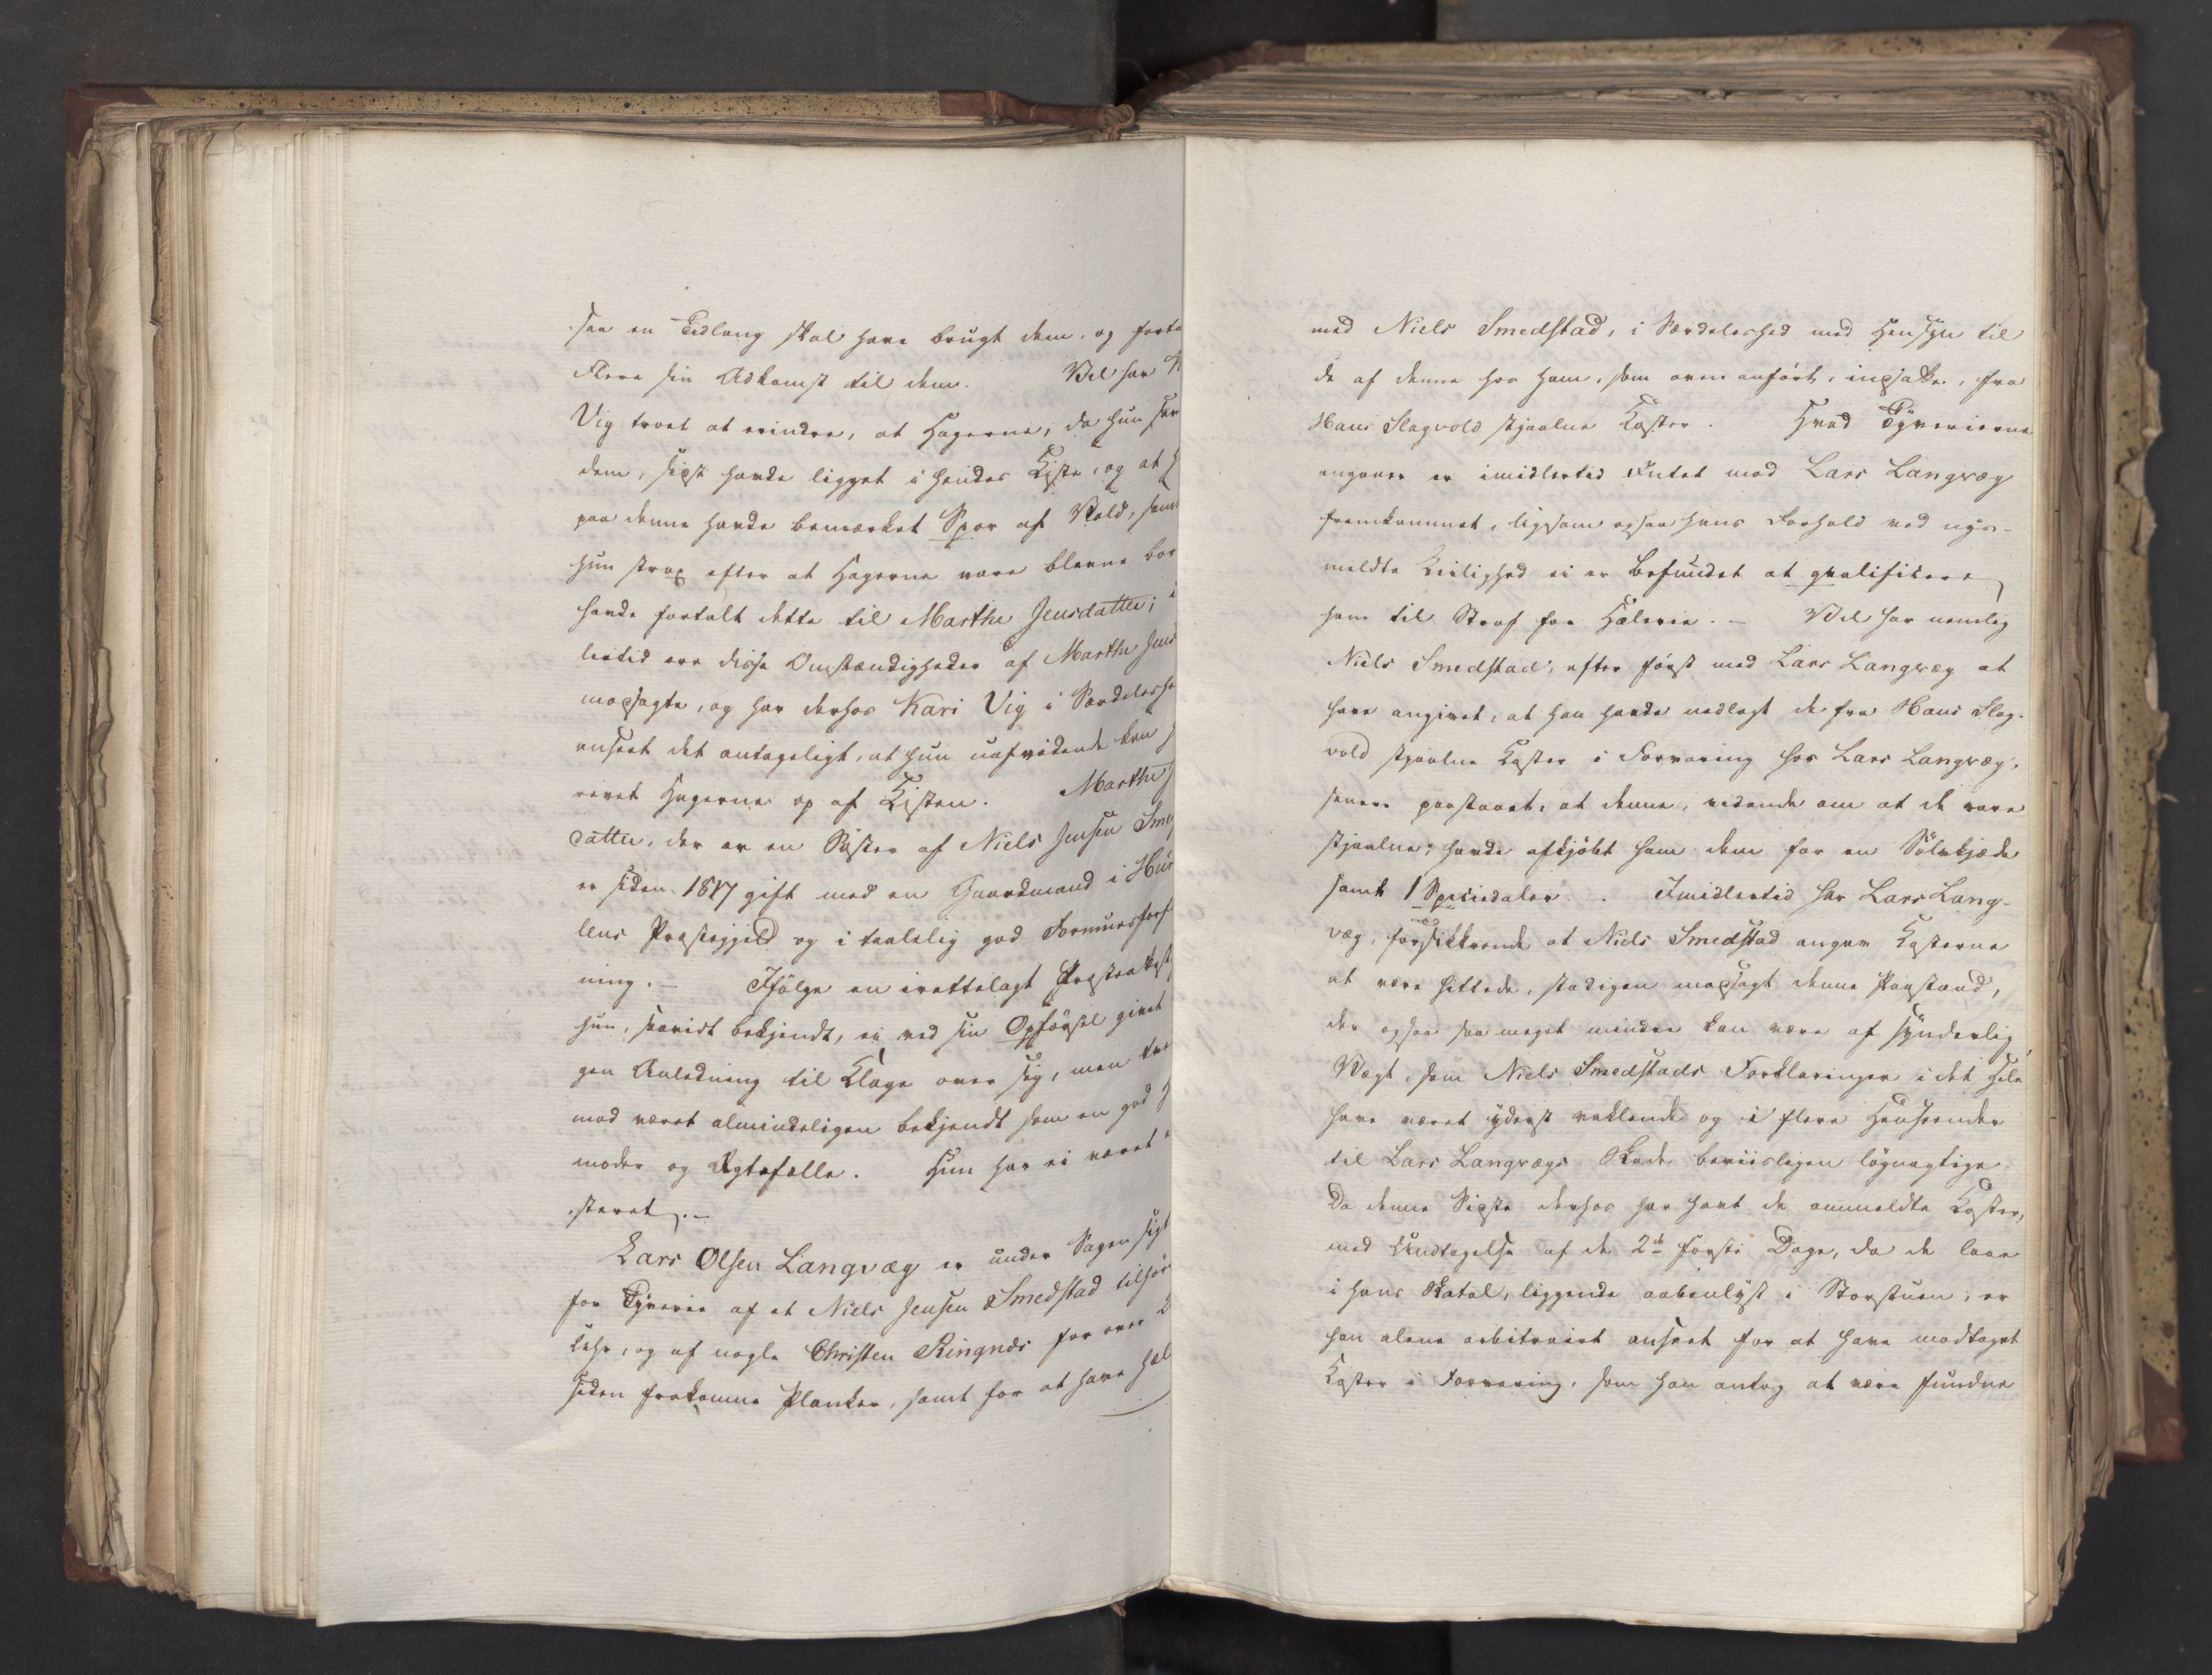 saa en Tidlang skal have brugt dem, og forta
Flere sin Adkomst til dem. Vel har K
Vig troet at erindre, at Hagerne, da hun sav
dem, sidst havde ligget i hendes Kiste, og at h
paa denne havde bemærket Spor af Vold, sam
hun strax efter at Hagerne vare blevne bor
havde fortalt dette til Marthe Jensdatter; i
lertid ere disse Omstændigheder af Marthe Jens
modsagte, og har derhos Kari Vig i Særdelesh
anseet det antageligt, at hun uafvidende kan h
revet Hagerne op af Kisten. Marthe J
datter, der er en Søster af Niels Jensen Sme
er siden 1817 gift med en Gaardmand i Hur
lens Præstegjeld og i taalelig god Formuesforf
ning. – Ifølge en irettelagt Præsteattest
hun, saavidt bekjendt, ei ved sin Opførsel givet
gen Anledning til Klage over sig, men tve
mod været almindeligen bekjendt som en god H
moder og Ægtefælle. Hun har ei været a
steret. –
Lars Olsen Langvæg er under Sagen sigt
for Tyverie af et Niels Jensen Smedstad tilhør
Uhr, og af nogle Christen Ringnæs for over 2
siden frakomne Planker, samt for at have hæl
med Niels Smedstad, i Særdeleshed med Hensyn til
de af denne hos ham, som oven anført, indsatte, fra
Hans Slagvold stjaalne Koster. Hvad Tyverierne
angaaer er imidlertid Intet mod Lars Langvæg
fremkommet, ligesom ogsaa hans Forhold ved nys-
meldte Leilighed ei er befundet at qvalificere
ham til Straf for Hælerie. – Vel har nemlig
Niels Smedstad, efter først med Lars Langvæg at
have angivet, at han havde nedlagt de fra Hans Slag-
vold stjaalne Koster i Forvaring hos Lars Langvæg,
senere paastaaet, at denne, vidende om at de vare
stjaalne, havde afkjøbt ham dem for en Sølvkjæde
samt 1 Speciedaler. . Imidlertid har Lars Lang-
væg, forsikkrende at Niels Smedstad angav Kosterne
at være hittede, stadigen modsagt denne Paastand,
der ogsaa saa meget mindre kan være af synderlig
Vægt, som Niels Smedstads Forklaringer i det Hele
have været yderst vaklende og i flere Henseender
til Lars Langvægs Skade beviisligen løgnagtige.
Da denne Sidste derhos har havt de ommeldte Koster,
med Undtagelse af de 2de første Dage, da de laae
i hans Skatol, liggende aabenlyst i Storstuen, er
han alene arbitrairt anseet for at have modtaget
Koster i Forvaring, som han antog at være fundne